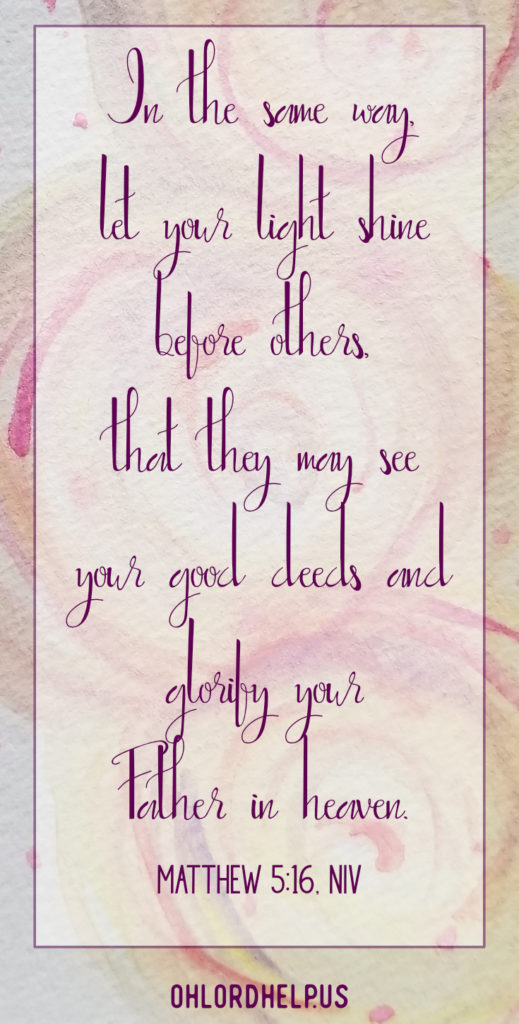 In the same way,
let your light shine
before others,
that they may see
your good deeds and
glorify your
Father in heaven.
MATTHEW 5:16, NIV
OHLORDHELP.US